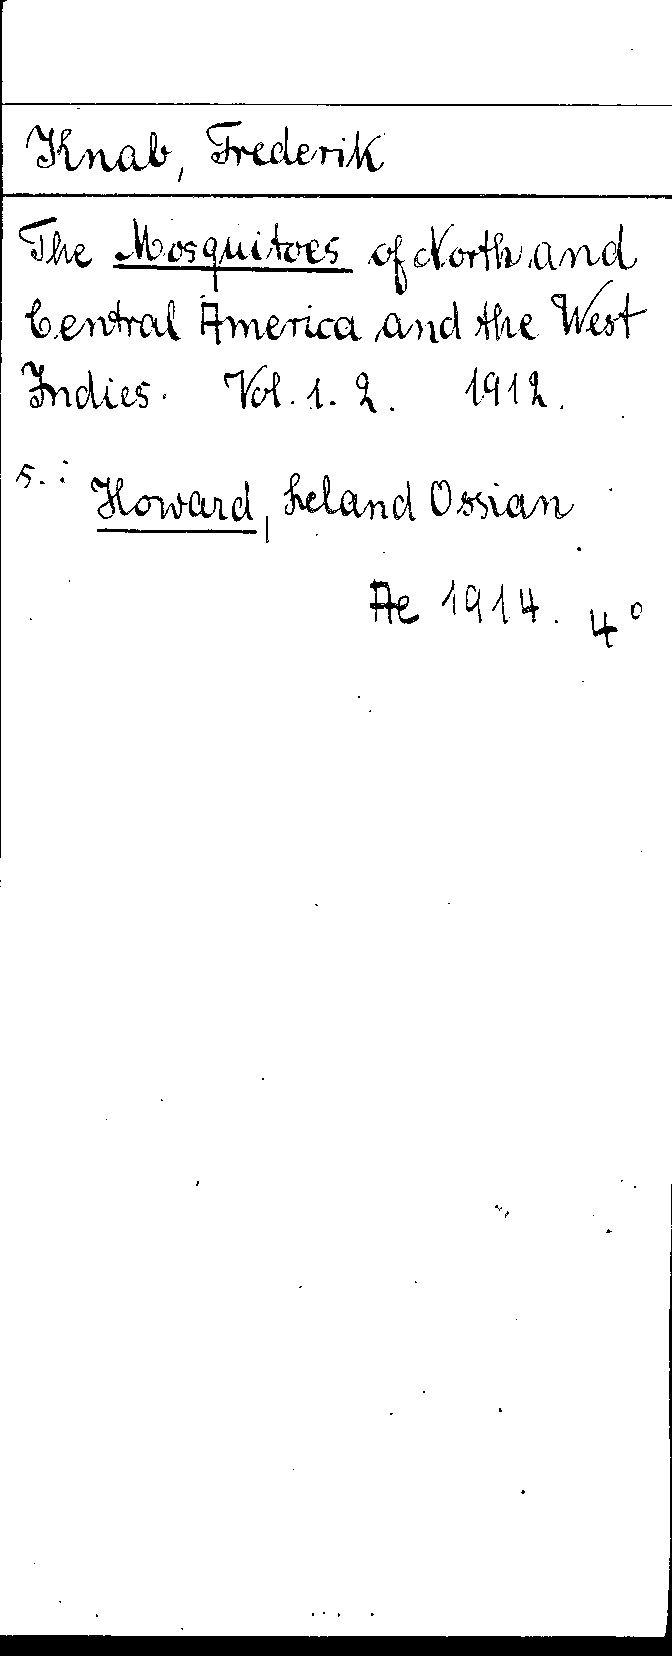 Knab, Frederik
The Mosquitoes of North and
Central America and the West
Indies. Vol. 1. 2. 1912.
s. :
Howard, Leland Ossian
Ae 1914. 4°